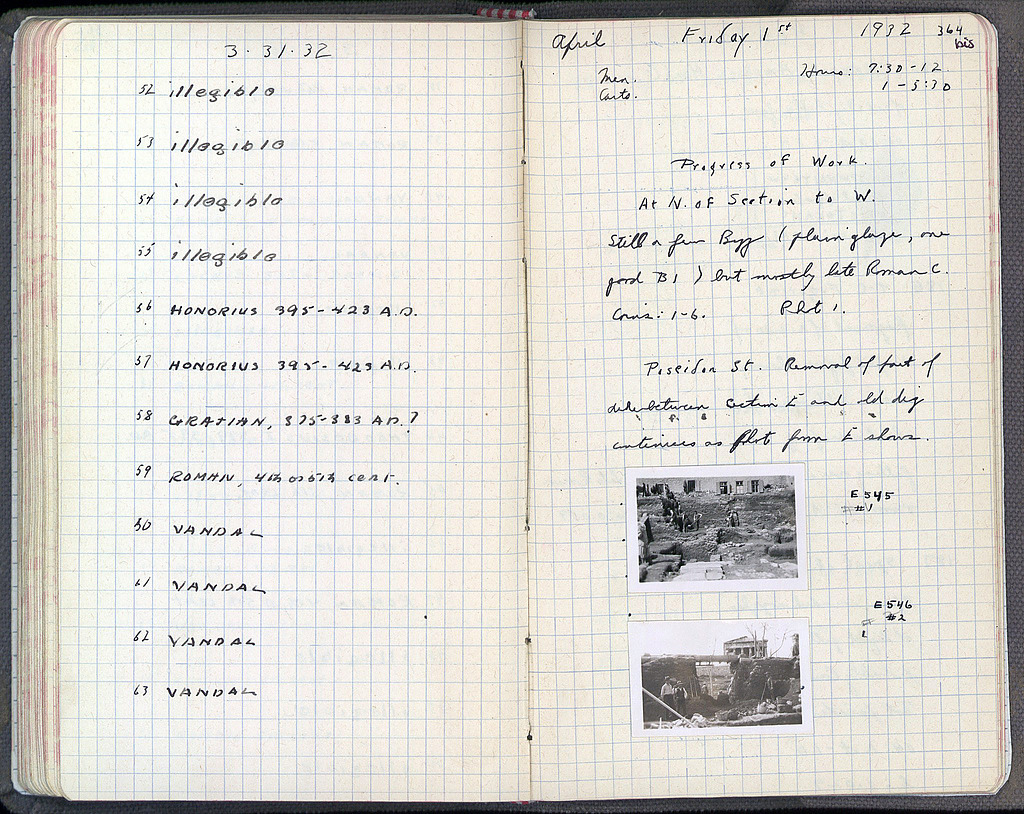 3·31·32
52 illegible
53 illegible
54 illegible
55 illegible
56 HONORIUS 395-423 A.D.
57 HONORIUS 395-423 A.D.
58 GRATIAN, 375-383 AD.?
59 ROMAN, 4th or 5th cent.
60 VANDAL
61 VANDAL
62 VANDAL
63 VANDAL
April Friday 1st 1932 364
bis
Men. Hours: 7:30-12
Carts. 1-5:30
Progress of Work.
At N. of Section to W.
Still a few Byz (plain glaze, one
good B1) but mostly late Roman C.
Coins: 1-6. Phot 1.
Poseidon St. Removal of part of
dike between Section E and old dig
continues as phot from E shows.
E 545
#1
E 546
#2